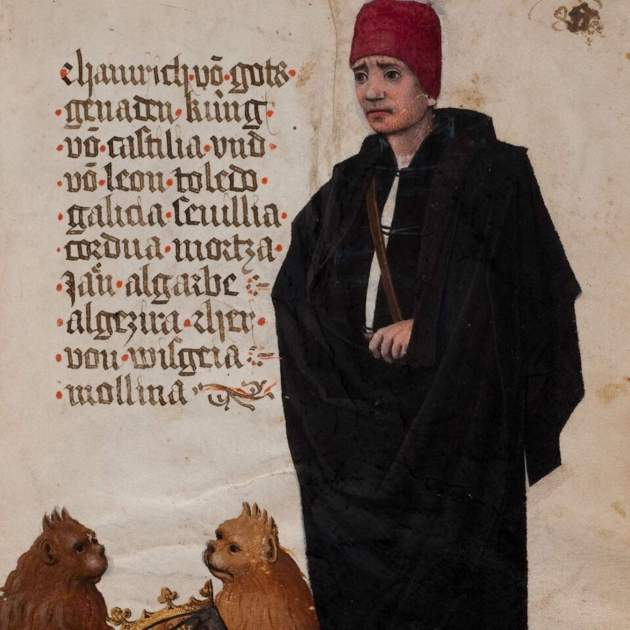 ·chainrich·võ·gots·
·genaden·küng·
·võ·castilia·vnd·
·võ·leon·toledo·
·galicia·seuillia·
·cordua·mortza·
·Jaü·algarbe
·algezira·rher·
·von·wisgeia
·mollina